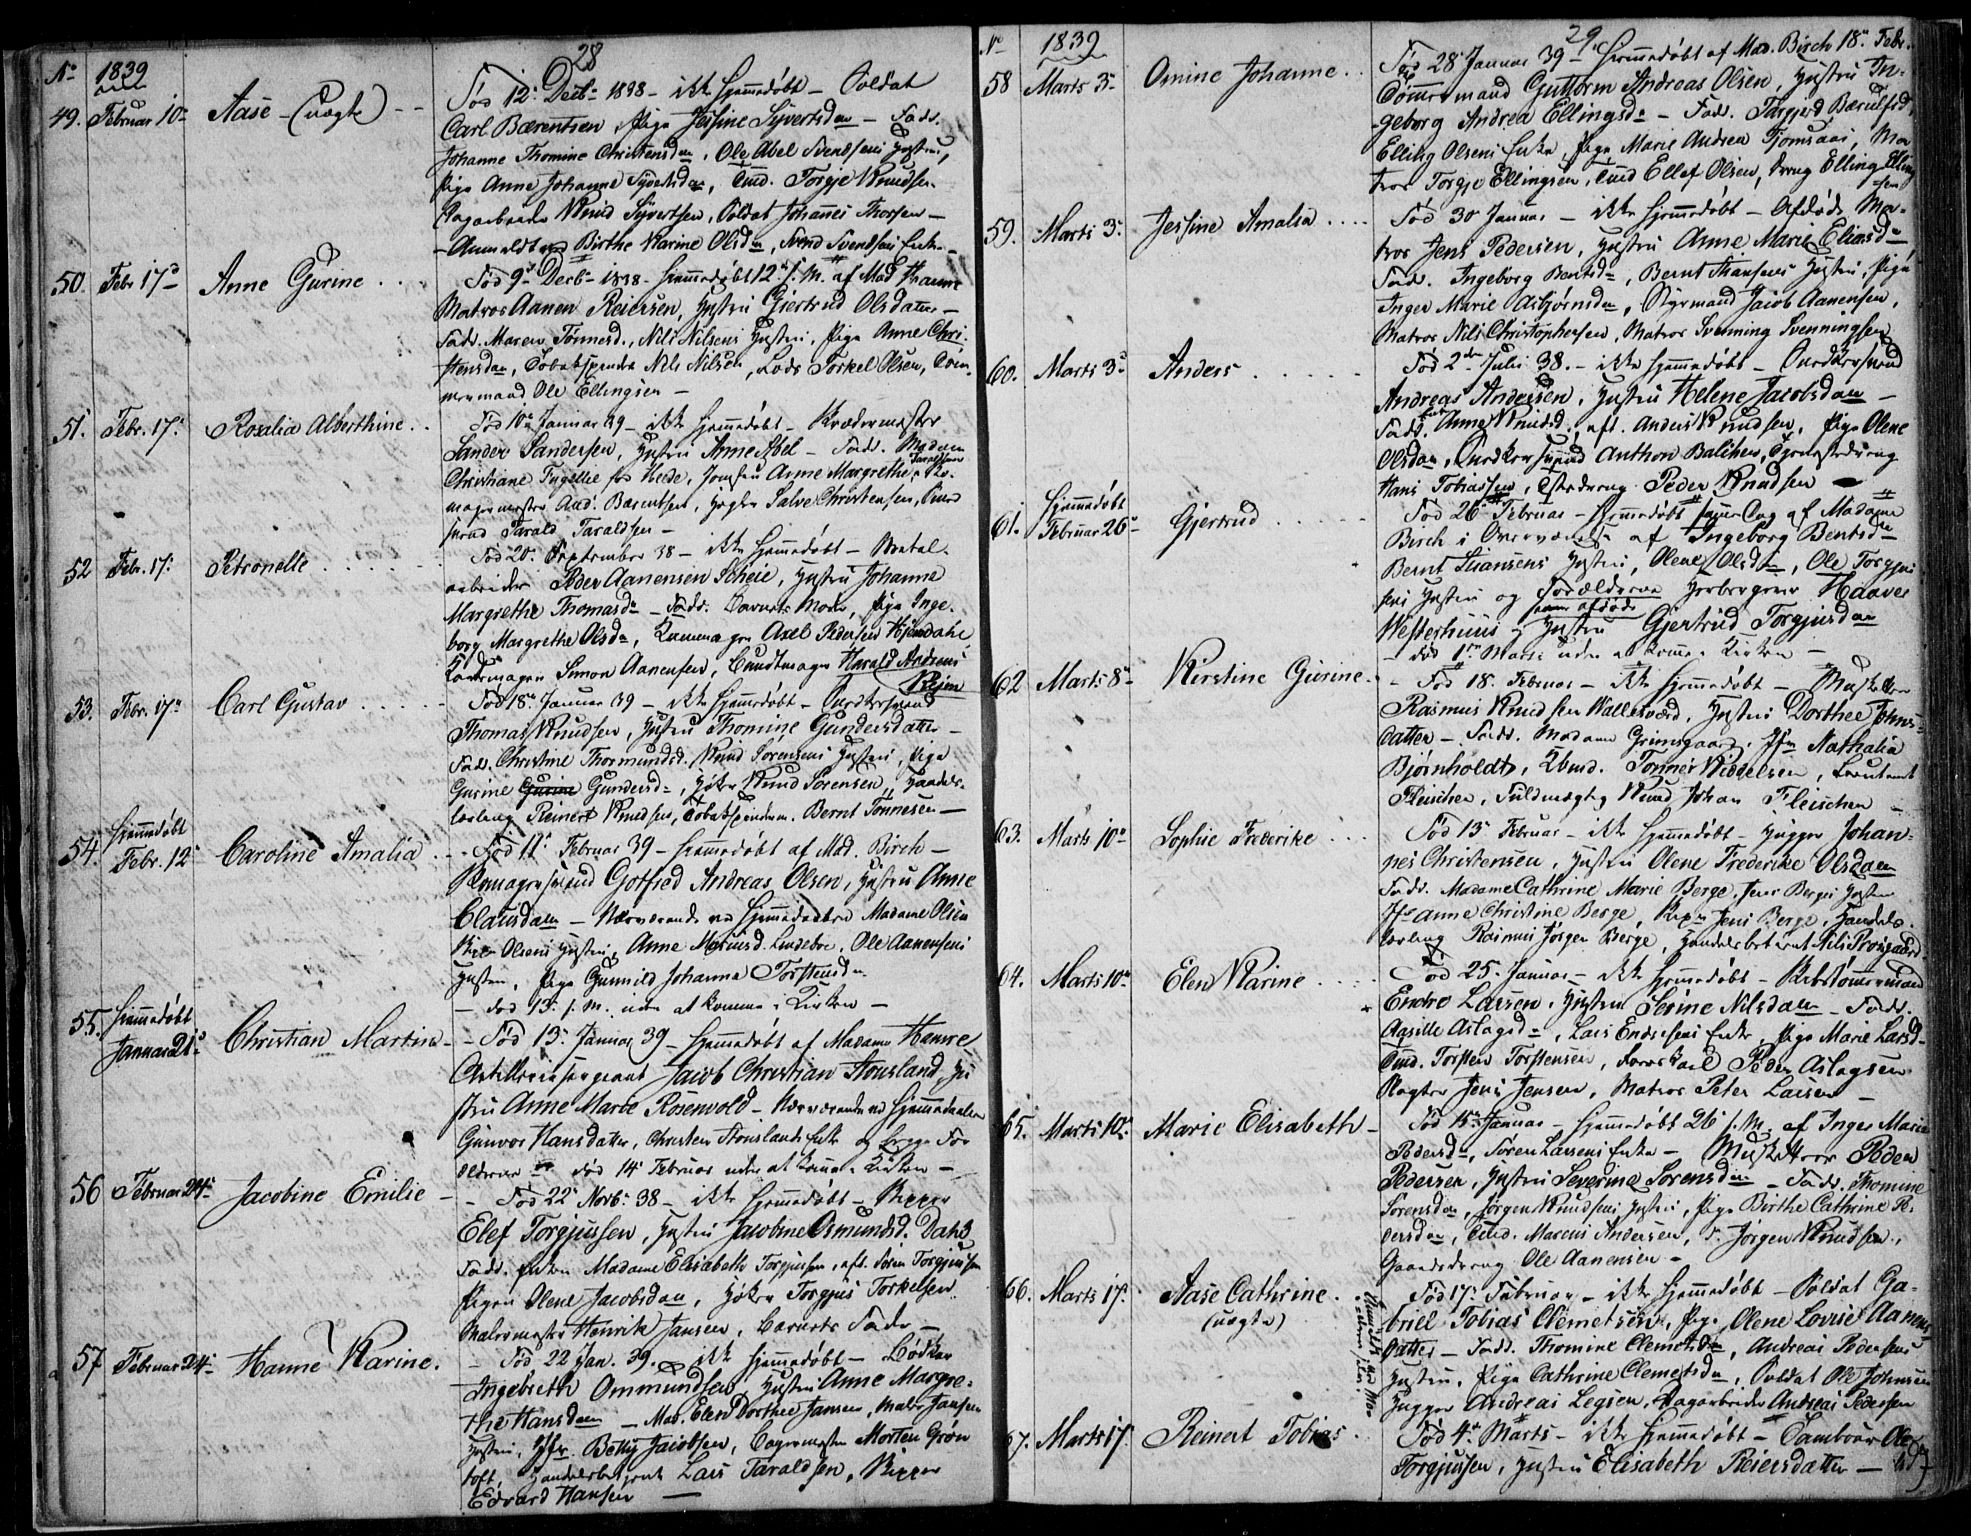 28
No 1839
49. Februar 10de Aase (uægte) Fød 12. Decb. 1838 – ikke hjemmedøbt – Soldat
Carl Bærentsen, Pige Jessine Syvertsdr – Fadd.
Johanne Thomine Christensdr, Ole Abel Svendsens Hustru,
Pige Anne Johanne Syvertsdr, Tørgje Knudsen
Dagarbeider Knud Syvertsen, Soldat Johannes Thorsen –
Anmeldt Birthe Karine Olsdr, Svend Svendsens Enke
50. Febr 17de Anne Gurine . . . Fød 9de Decb 1838 – hjemmedøbt 12te s. M. af Mad Hanne
Matros Aanen Reiersen, Hustru Gjertrud Olsdatter –
Fadd. Maren Tønnesd., Nils Nilsens Hustru, Pige Anne Chri-
stensdr, Tobakspinder Nils Nilsen, Lods Torkel Olsen, Tøm-
mermand Ole Ellingsen –
51. Febr. 17. Rosalia Alberthine . . Fød 10de Januar 39 – ikke hjemmedøbt – Skrædermester
Sander Sandersen, Hustru Anne Abel – Fadd. Madam
Christiane Heide, Jomfru Anne Margrethe Taraldsen
And. Barentsen, Salve Christensen,
Tarald Taraldsen –
52 Febr. 17. Petronelle . . . . . Fød 20. September 38 – ikke hjemmedøbt – Metal-
arbeider Peder Aanensen Scheie, Hustru Johanne
Margrethe Thomasdr – Fadd. Barnets Moder, Pige Inge-
borg Margrethe Olsdr, Axel Pedersen Hjemdahl,
Simon Aanensen, Bundtmager Harald Andreas
53. Febr. 17de Carl Gustav . . . . . Fød 18. Januar 39 – ikke hjemmedøbt –
Thomas Knudsen, Hustru Thomine Gundersdatter –
Fadd. Christine Thormundsd. Knud Sørensens Hustru, Pige
Gurine Gundersdr, Knud Sørensen, Handels-
lærling Reinert Knudsen, Tobakspinder Bernt Tønnesen –
54. Hjemmedøbt
Febr. 12te Caroline Amalia . . Fød 11te Februar 39 – hjemmedøbt af Mad. Birch –
Gotfred Andreas Olsen, Hustru Anne
Clausdatr – Nærværende ved Hjemmedaaben Madame Olsen
Olsens Hustru, Anne Mariusd. Lindeboe, Ole Aanensens
Hustru, Pige Gunnild Johanna Torstensdr
– død 13. s. M. uden at komme i Kirken –
55. Hjemmedøbt
Januar 21de Christian Martin – Fød 13. Januar 39 – hjemmedøbt af Madame Hanne
Artillerisergeant Jacob Christian Stousland, Hu
stru Anne Marie Rosenvold – Nærværende ved Hjemmedaaben
Gunvor Hansdatter, Christen Stouslands Enke og begge For
ældrene – død 14. Februar uden at komme i Kirken –
56 Februar 24de Jacobine Emilie – Fød 22de Novb. 38 – ikke hjemmedøbt – Skipper
Elef Torgjussen, Hustru Jacobine Osmundsd. Dahl
Fadd. Enken Madame Elisabeth Torgjussen, aft. Søren Torgjussen
Pigen Olene Jacobsdatr, Torgjus Torkelsen,
Malermester Henrik Jansen, Barnets Fader –
57 Februar 24de Hanne Karine. – Fød 22 Jan. 39. – ikke hjemmedøbt – Bødker
Ingebreth Ommundsen, Hustru Anne Margre-
the Hansdatr – Mad. Elen Dorthea Jansen, Maler Jansens
Hustru, Jfr Betty Jacobsen, Bagermester Morten Grøn
toft, Handelsbetjent Lars Taraldsen, Skipper
Edvard Hansen –
29
No 1839
58 Marts 3de Omine Johanne . . Fød 28de Januar 39 – hjemmedøbt af Mad. Birch 18de Febr.
Tømmermand Guttorm Andreas Olsen, Hustru In-
geborg Andrea Ellingsdr – Fadd. Torgjerd Bærulfsd,
Elling Olsens Enke, Pige Marie Andrea Fjømsaas, Ma
tros Torgje Ellingsen, Ellef Olsen, Dreng Elling Elling
sen
59. Marts 3. Jessine Amalia . . . . Fød 30 Januar – ikke hjemmedøbt – Afdøde Ma-
tros Jens Pedersen, Hustru Anne Marie Eliasdr
Fadd. Ingeborg Bentsdr, Bernt Stiansens Hustru, Pige
Inger Marie Asbjørnsdr, Styrmand Jacob Aanensen,
Matros Nils Christophersen, Matros Svenning Svenningsen
60. Marts 3. Anders . . . . . Fød 2den Juli 38. – ikke hjemmedøbt –
Andreas Andersen, Hustru Helene Jacobsdatr –
Fadd. Anne Knudsd, aft. Anders Knudsen, Pige Olene
Olsdatr, Anthon Balchen,
Hans Tobiassen, Peder Knudsen –
61. Hjemmedøbt
Februar 26de Gjertrud . . . . . Fød 26 Februar – hjemmedøbt samme Dag af Madame
Birch i Overværelse af Ingeborg Bentsdr
Bernt Stiansens Hustru, Olene Olsdr, Ole Torgjus
sens Hustru og Forældrene Herbergerer Haaver
nem afdøde
Westerhuus og Hustru Gjertrud Torgjusdatr
– død 1ste Marts uden at komme i Kirken –
62 Marts 8de Kirstine Gurine . – Fød 18. Februar – ikke hjemmedøbt – Musketeer
Rasmus Knudsen Wallesværd, Hustru Dorthee Johns-
datter – Fadd. Madame Grimsgaard, Jfr Nathalia
Bjørnholdt, Tønnes Nielsen, Lieutenant
Fleischer, Fuldmægtig Knud Johan Fleischer –
63. Marts 10de Sophie Frederike . . . . Fød 13. Februar – ikke hjemmedøbt – Hugger Johan-
nes Christensen, Hustru Olene Frederike Olsdatr
Fadd. Madame Cathrine Marie Berge, Jens Berges Hustru
Jfr Anne Christine Berge, Jens Berge, Handels-
lærling Rasmus Jørgen Berge, Handelsbetjent Nils Prosgaard
64. Marts 10de Elen Karine . . . . Fød 25. Januar – ikke hjemmedøbt – Skibstømmermand
Endre Larsen, Hustru Serine Nilsdatr – Fadd.
Aasille Aslagsdr, Lars Endresens Enke, Pige Marie Larsd
Torsten Torstensen, Peder Aslagsen
Slagter Jens Jensen, Matros Peter Larsen –
65. Marts 10de Marie Elisabeth – Fød 15de Januar – hjemmedøbt 26 s. M. af Inger Marie
Pedersdr, Søren Larsens Enke – Musketeer Peder
Pedersen, Hustru Severine Sørensdr – Fadd. Thomine
Sørensdatr, Jørgen Knudsens Hustru, Pige Birthe Cathrine Pe-
dersdatr, Marcus Andersen, Jørgen Knudsen,
Gaardsdreng Ole Aanensen –
66. Marts 17. Aase Cathrine .
(uægte) Fød 17. Februar – ikke hjemmedøbt – Soldat Ga-
briel Tobias Clemetsen, Pige Olene Lovise Aanens-
datter – Fadd. Thomine Clemetsdr, Andreas Pedersens
Hustru, Pige Cathrine Clemetsdr, Soldat Ole Johnsen
Hugger Andreas Legsen, Dagarbeider Andreas Pedersen
67. Marts 17. Reinert Tobias . Fød 4de Marts – ikke hjemmedøbt – Tambour Ole
Torgjussen, Hustru Elisabeth Reiersdatter –